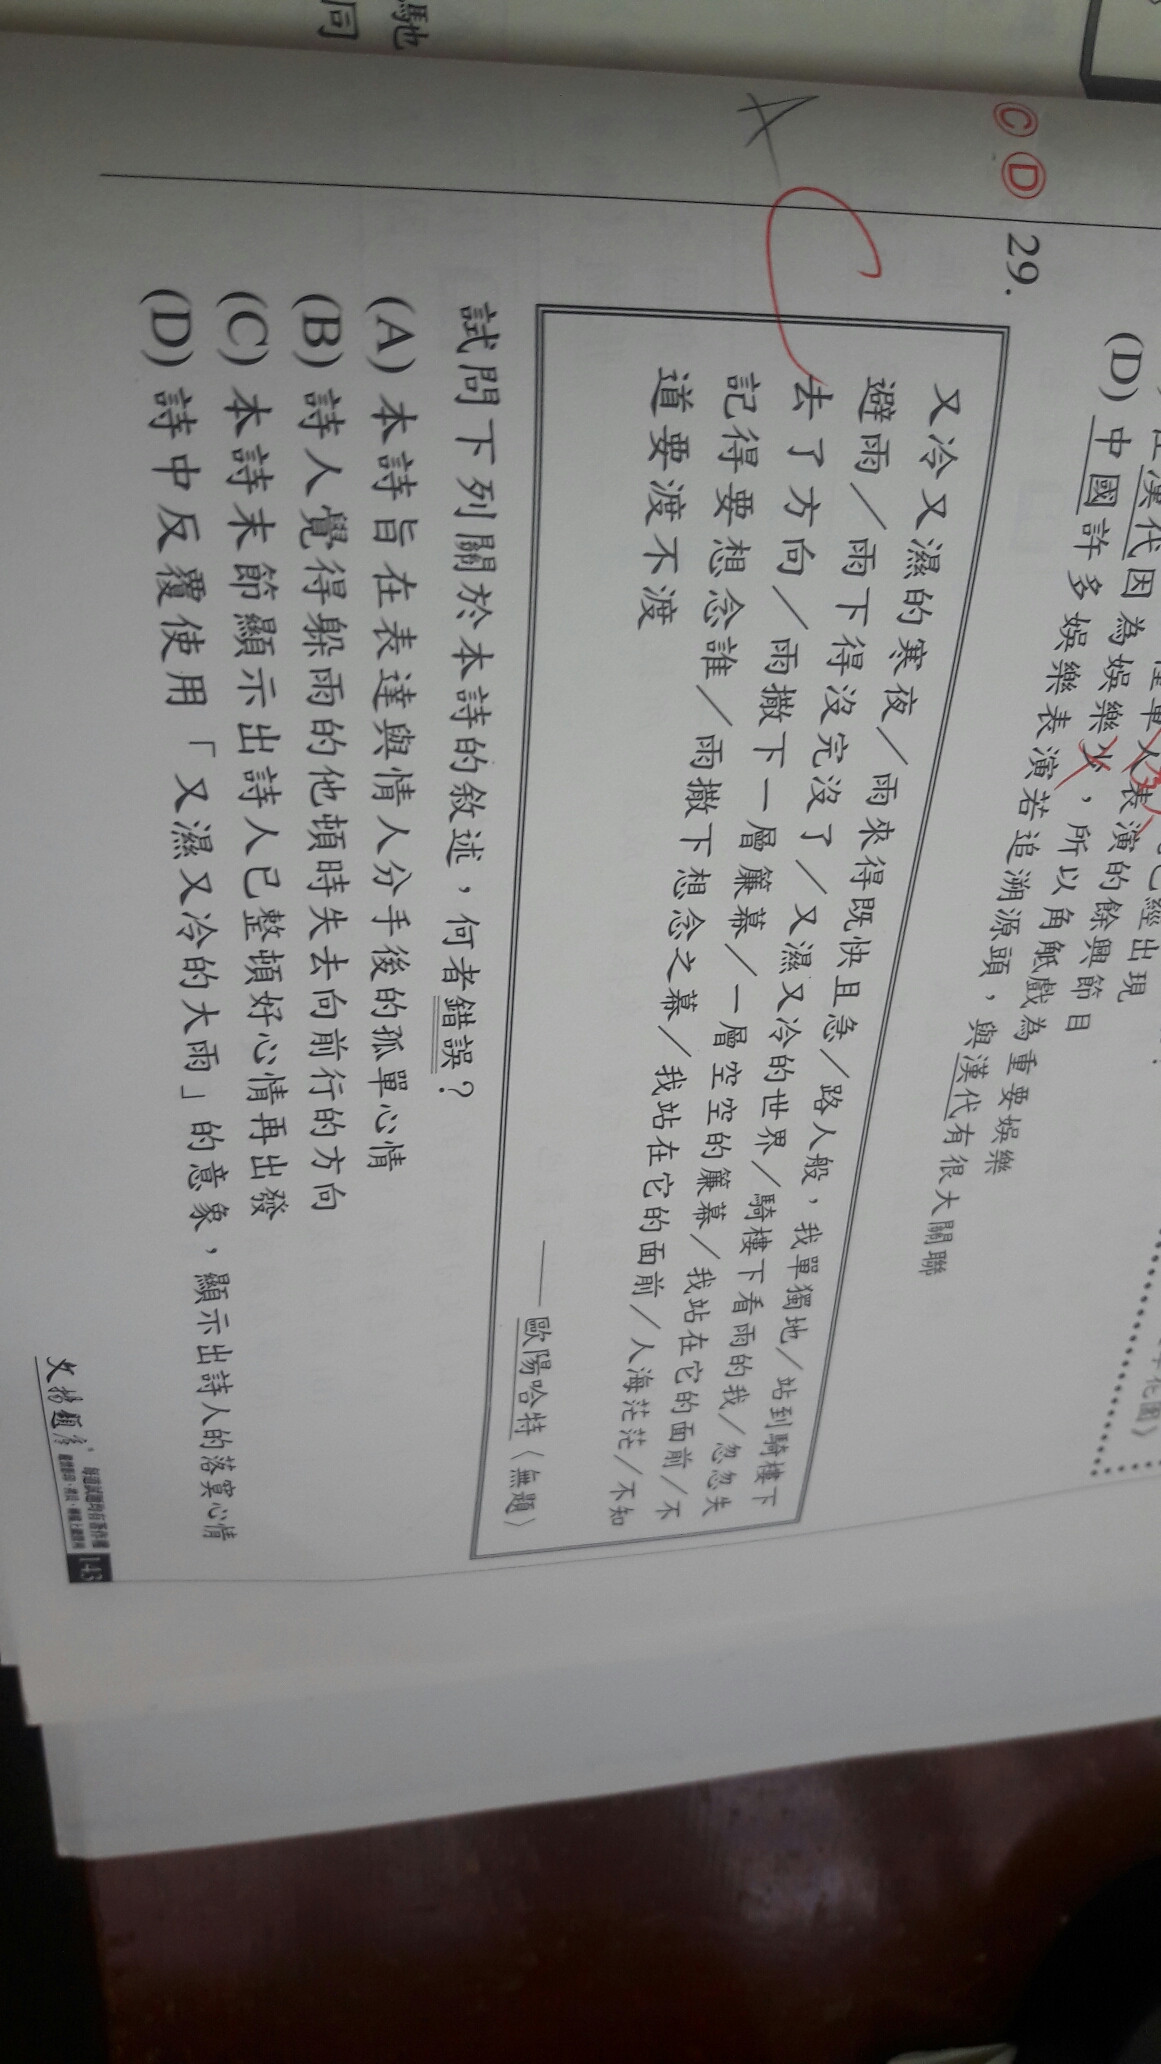 馳
同
在漢代因為娛樂少，所以角觝戲為重要娛樂
(D) 中國許多娛樂表演若追溯源頭，與漢代有很大關聯
Ⓒ Ⓓ
A
C
29.
又冷又濕的寒夜／雨來得既快且急／路人般，我單獨地／站到騎樓下
避雨／雨下得沒完沒了／又濕又冷的世界／騎樓下看雨的我／忽忽失
去了方向／雨撒下一層簾幕／一層空空的簾幕／我站在它的面前／不
記得要想念誰／雨撒下想念之幕／我站在它的面前／人海茫茫／不知
道要渡不渡
——歐陽哈特〈無題〉
試問下列關於本詩的敘述，何者錯誤？
(A) 本詩旨在表達與情人分手後的孤單心情
(B) 詩人覺得躲雨的他頓時失去向前行的方向
(C) 本詩末節顯示出詩人已整頓好心情再出發
(D) 詩中反覆使用「又濕又冷的大雨」的意象，顯示出詩人的落寞心情
143